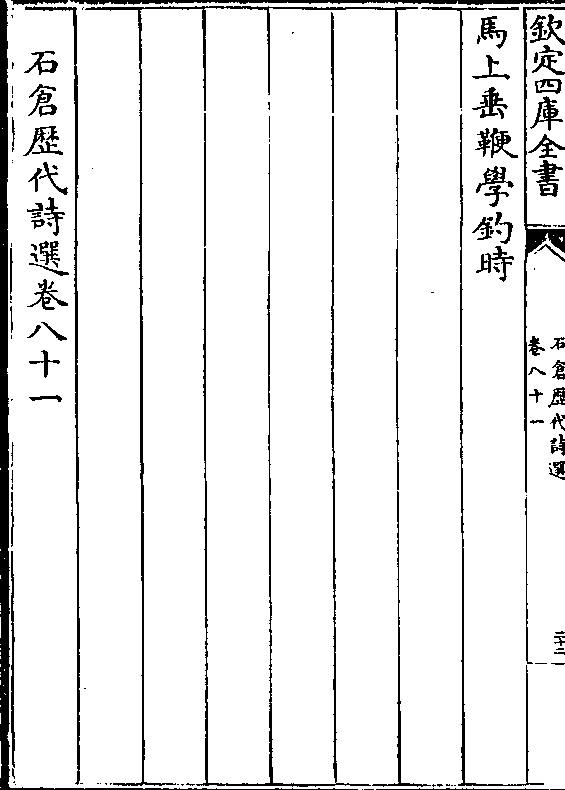 欽定四庫全書
石倉歴代詩選
卷八十一
馬上垂鞭學釣時
石倉歴代詩選卷八十一